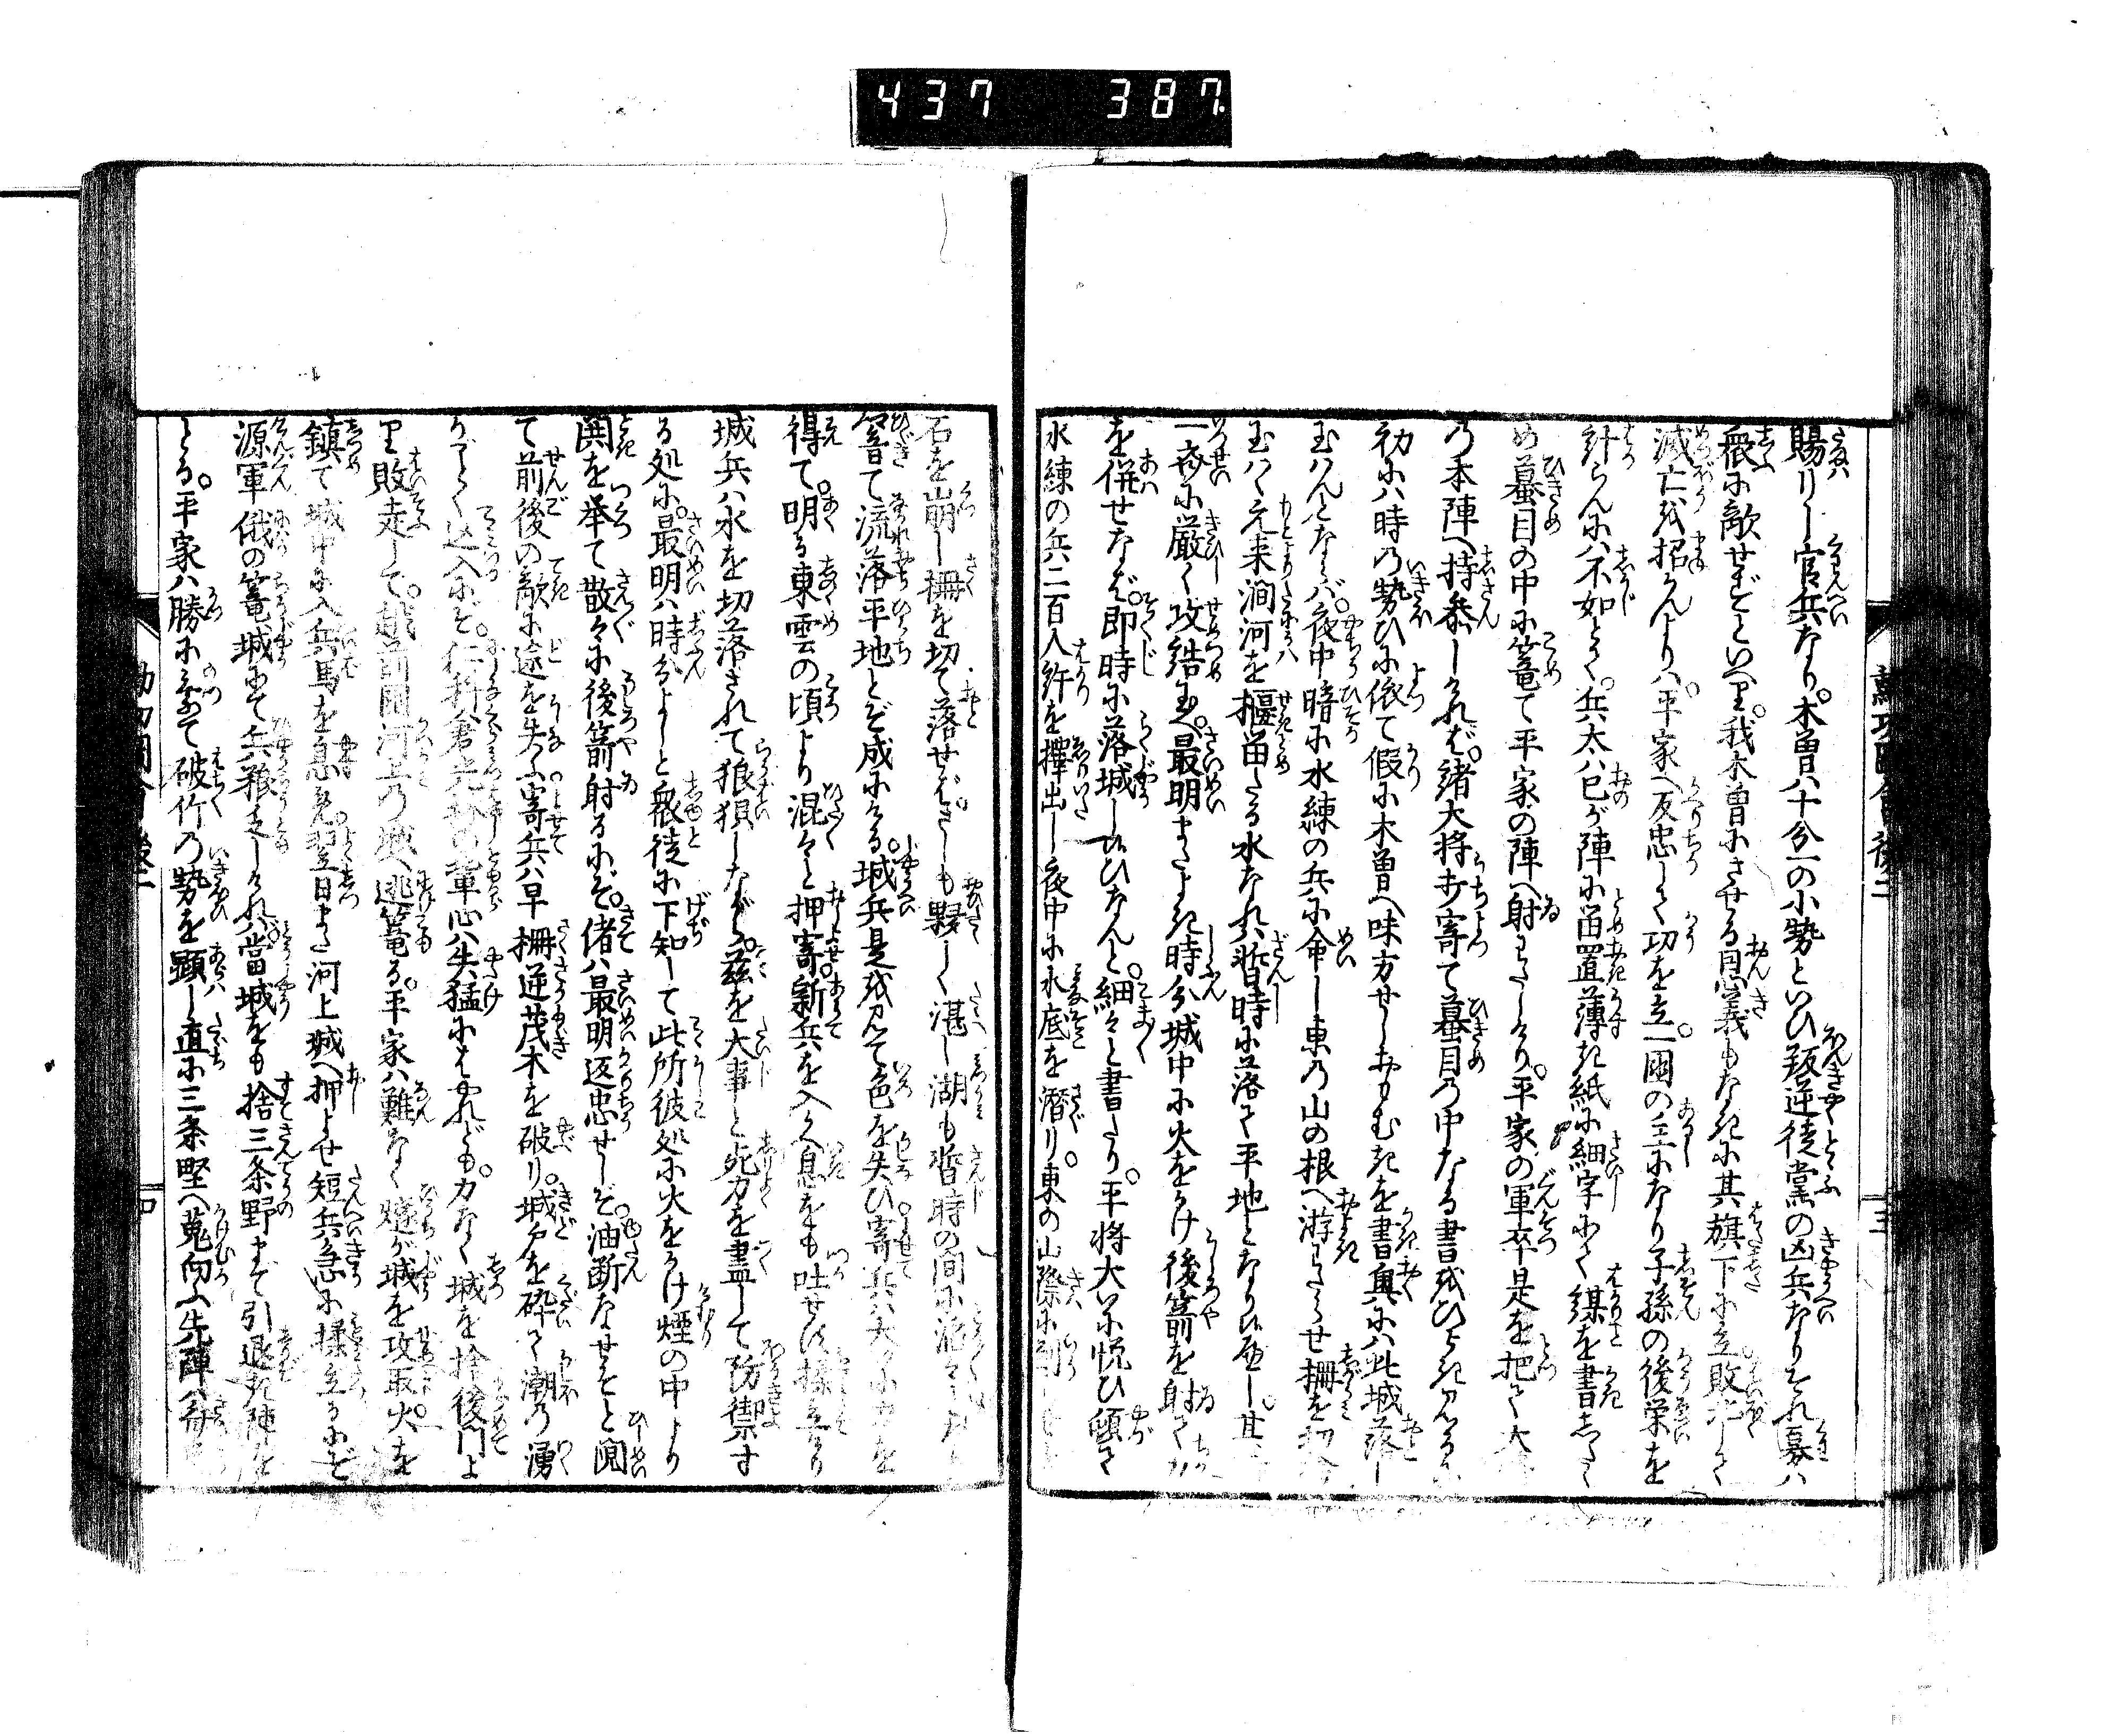 437 387
賜りし官兵なり。木曽ハ十分一の小勢といひ叛逆徒黨の凶兵なりそれ寡ハ
衆に敵せずといへり。我木曽にさせる恩義もなきに其旗下に立敗北して
滅亡を招かんよりハ。平家へ反忠して功を立。一國の主になり子孫の後栄を
計らんにハ不如とて。兵太ハ己が陣に畄置薄き紙に細字にて謀を書したゝ
め蟇目の中に篭て平家の陣へ射
の本陣へ持参しけれバ。諸大将打寄て蟇目の中なる書をひらき見るに
初にハ時の勢ひに依て假に木曽へ味方せしおもむきを書奥にハ此城落し
玉はんとならバ。夜中暗に水練の兵に命し東の山の根へ游わたらせ柵を切
玉はゝ元来澗河を堰畄たる水なれバ暫時に落て平地となり候べし。其
一斉に厳く攻結玉へ。最明またよき時分城中に火をかけ後箭を射て力
を併せなバ。即時に落城し候ひなんと。細々と書たり。平将大に悦ひ頓て
水練の兵二百人許を擇出し夜中に水底を潜り。東の山際に到
石を崩し柵を切て落せバ。さしも夥しく湛し湖も暫時の間に
響て流落平地とぞ成にける。城兵是を見て色を失ひ寄兵ハ大に力を
得て。明る東雲の頃より混々と押寄新兵を入て息をも吐せず揉立
城兵ハ水を切落されて狼狽しながら。茲を大事と死力を盡して防禦す
る処に。最明ハ時分よしと衆徒に下知して此所彼処に火をかけ煙の中より
鬨を挙て散々に後箭射るにぞ。偖ハ最明返忠せしぞ。油断なせそと
て前後の敵に途を失ふ寄兵ハ早柵逆茂木を破り。城戸を砕て潮の湧
がごとく込入にぞ。仁科倉光林の輩心ハ矢猛にはやれども。力なく城を捨後門よ
り敗走して。越前國河上の城へ逃篭る。平家ハ難なく燧が城を攻取火を
鎮て城中に入兵馬を息見。翌日また河上城へ押よせ短兵急に揉立るにぞ
源軍俄の篭城にて兵粮乏しけれバ。當城をも捨三条野まで引退き陣を
とる。平家ハ勝に乗て破竹の勢を顕し直に三条野へ蒐向ふ先陣ハ